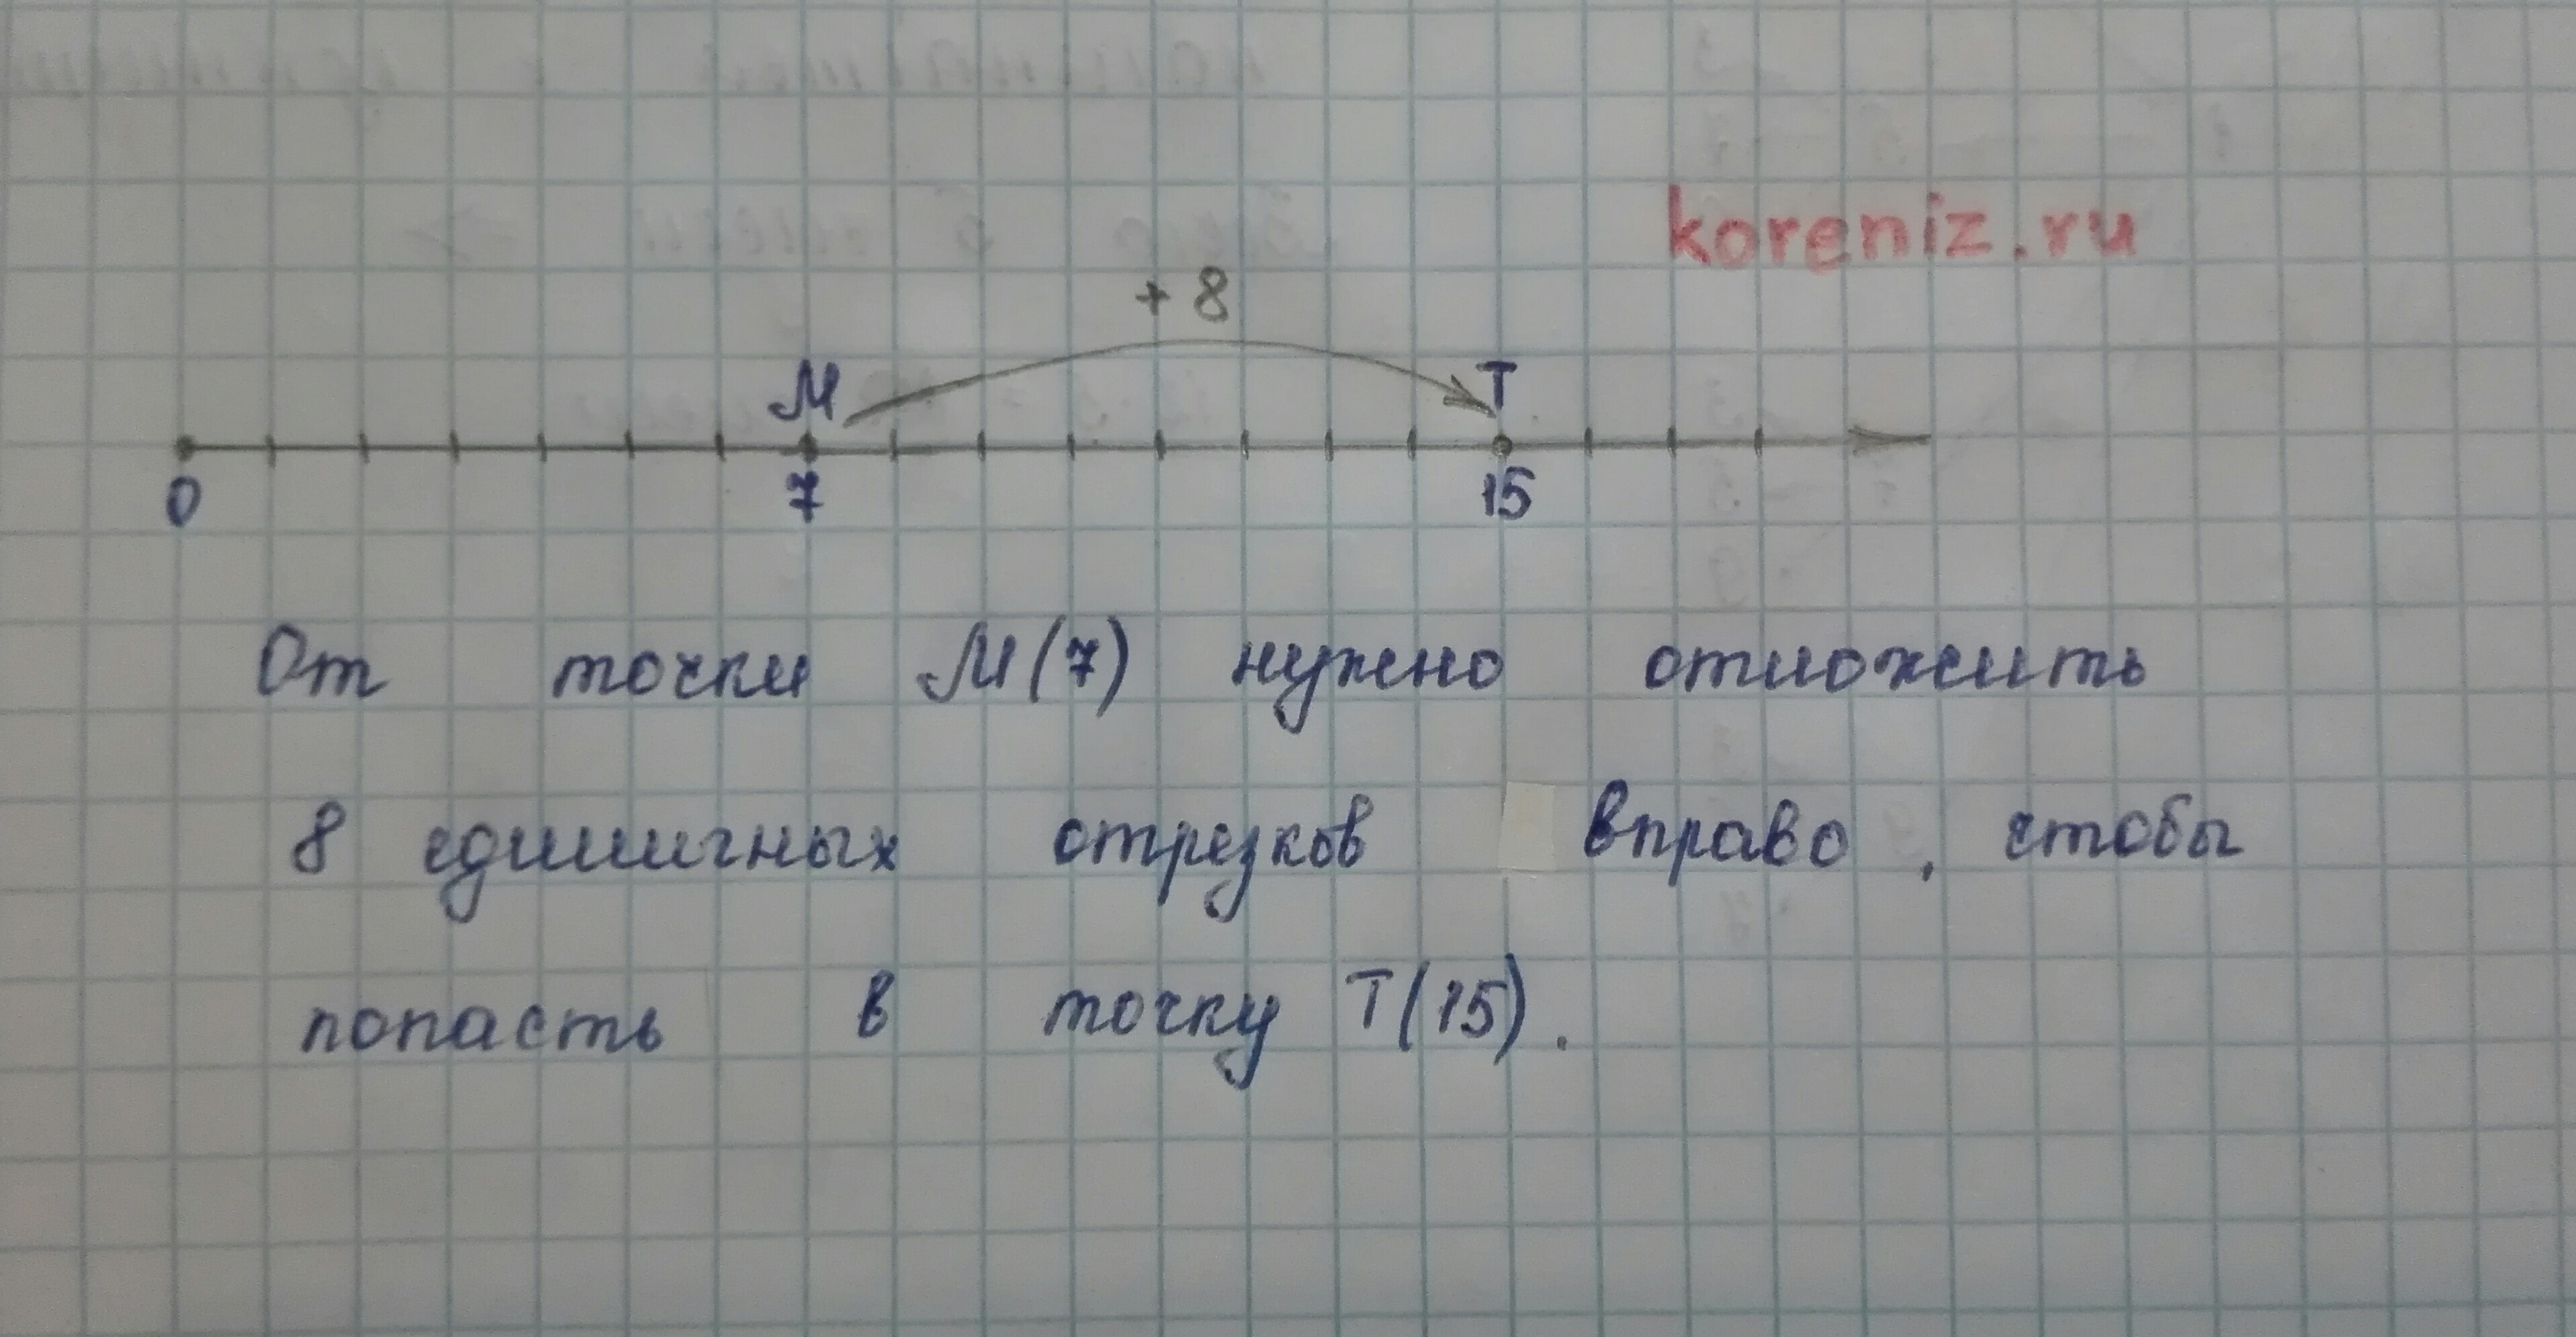 koreniz.ru
+ 8
М Т
0 7 15
От точки М(7) нужно отложить
8 единичных отрезков вправо, чтобы
попасть в точку Т(15).